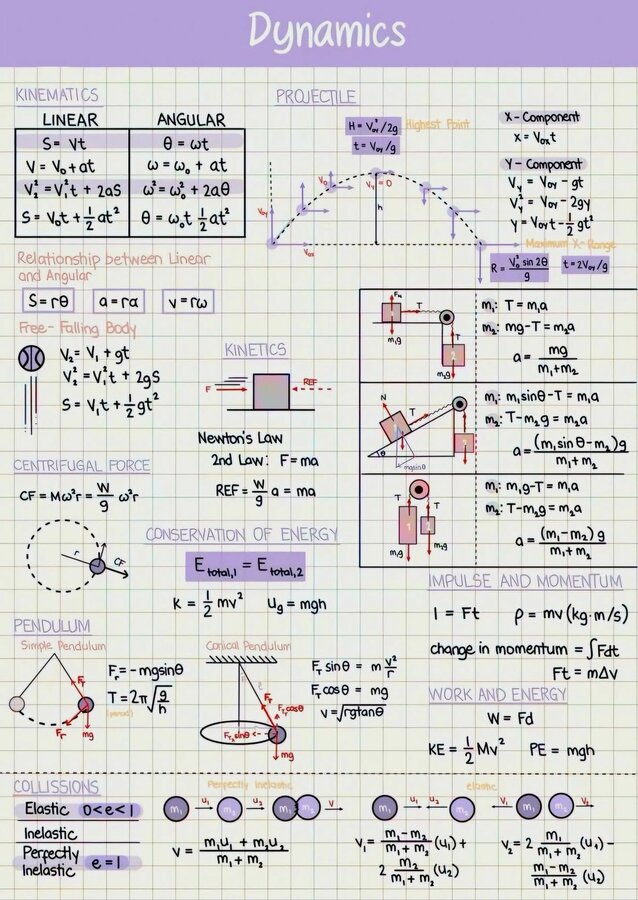 Dynamics
KINEMATICS
LINEAR ANGULAR
S = Vt θ = ωt
V = V₀ + at ω = ω₀ + at
V₂² = V₁²t + 2aS ω² = ω₀² + 2aθ
S = V₀t + 1/2 at² θ = ω₀t 1/2 at²
Relationship between Linear
and Angular
S = rθ a = rα v = rω
Free-Falling Body
V₂ = V₁ + gt
V₂² = V₁²t + 2gS
S = V₁t + 1/2 gt²
PROJECTILE
H = V₀y²/2g Highest Point
t = V₀y/g
V₀ Vy = 0
V₀y h
V₀x
Maximum X-Range
R = V₀² sin 2θ / g t = 2V₀y/g
X-Component
x = V₀x t
Y-Component
Vy = V₀y - gt
Vy² = V₀y - 2gy
y = V₀y t - 1/2 gt²
KINETICS
F REF
Newton's Law
2nd Law: F = ma
REF = W/g a = ma
T
T
m₁g
m₂g
m₁: T = m₁a
m₂: mg - T = m₂a
a = mg / m₁+m₂
N T
T
θ mgsinθ
m₁: m₁sinθ - T = m₁a
m₂: T - m₂g = m₂a
a = (m₁sinθ - m₂)g / m₁+m₂
T T
1 2
m₁g m₂g
m₁: m₁g - T = m₁a
m₂: T - m₂g = m₂a
a = (m₁-m₂)g / m₁+m₂
CENTRIFUGAL FORCE
CF = Mω²r = W/g ω²r
r CF
CONSERVATION OF ENERGY
E total,1 = E total,2
K = 1/2 mv² Ug = mgh
IMPULSE AND MOMENTUM
I = Ft ρ = mv (kg·m/s)
change in momentum = ∫Fdt
Ft = mΔv
PENDULUM
Simple Pendulum
Fᵣ = -mgsinθ
T = 2π√(g/h)
(period)
Fᴛ
Fᵣ mg
Conical Pendulum
Fᴛ
Fᴛ cosθ
Fᴛ sinθ
mg
Fᴛ sinθ = m v²/r
Fᴛ cosθ = mg
v = √rgtanθ
WORK AND ENERGY
W = Fd
KE = 1/2 Mv² PE = mgh
COLLISSIONS
Elastic 0<e<1
Inelastic
Perfectly
Inelastic e = 1
Perfectly inelastic
m₁ u₁ m₂ u₂ m₁ m₂ V
V = m₁u₁ + m₂u₂ / m₁ + m₂
elastic
m₁ u₁ u₂ m₂ V₁ m₁ m₂ V₂
V₁ = m₁-m₂ / m₁+m₂ (u₁) +
2 m₂ / m₁+m₂ (u₂)
V₂ = 2 m₁ / m₁+m₂ (u₁) -
m₁-m₂ / m₁+m₂ (u₂)